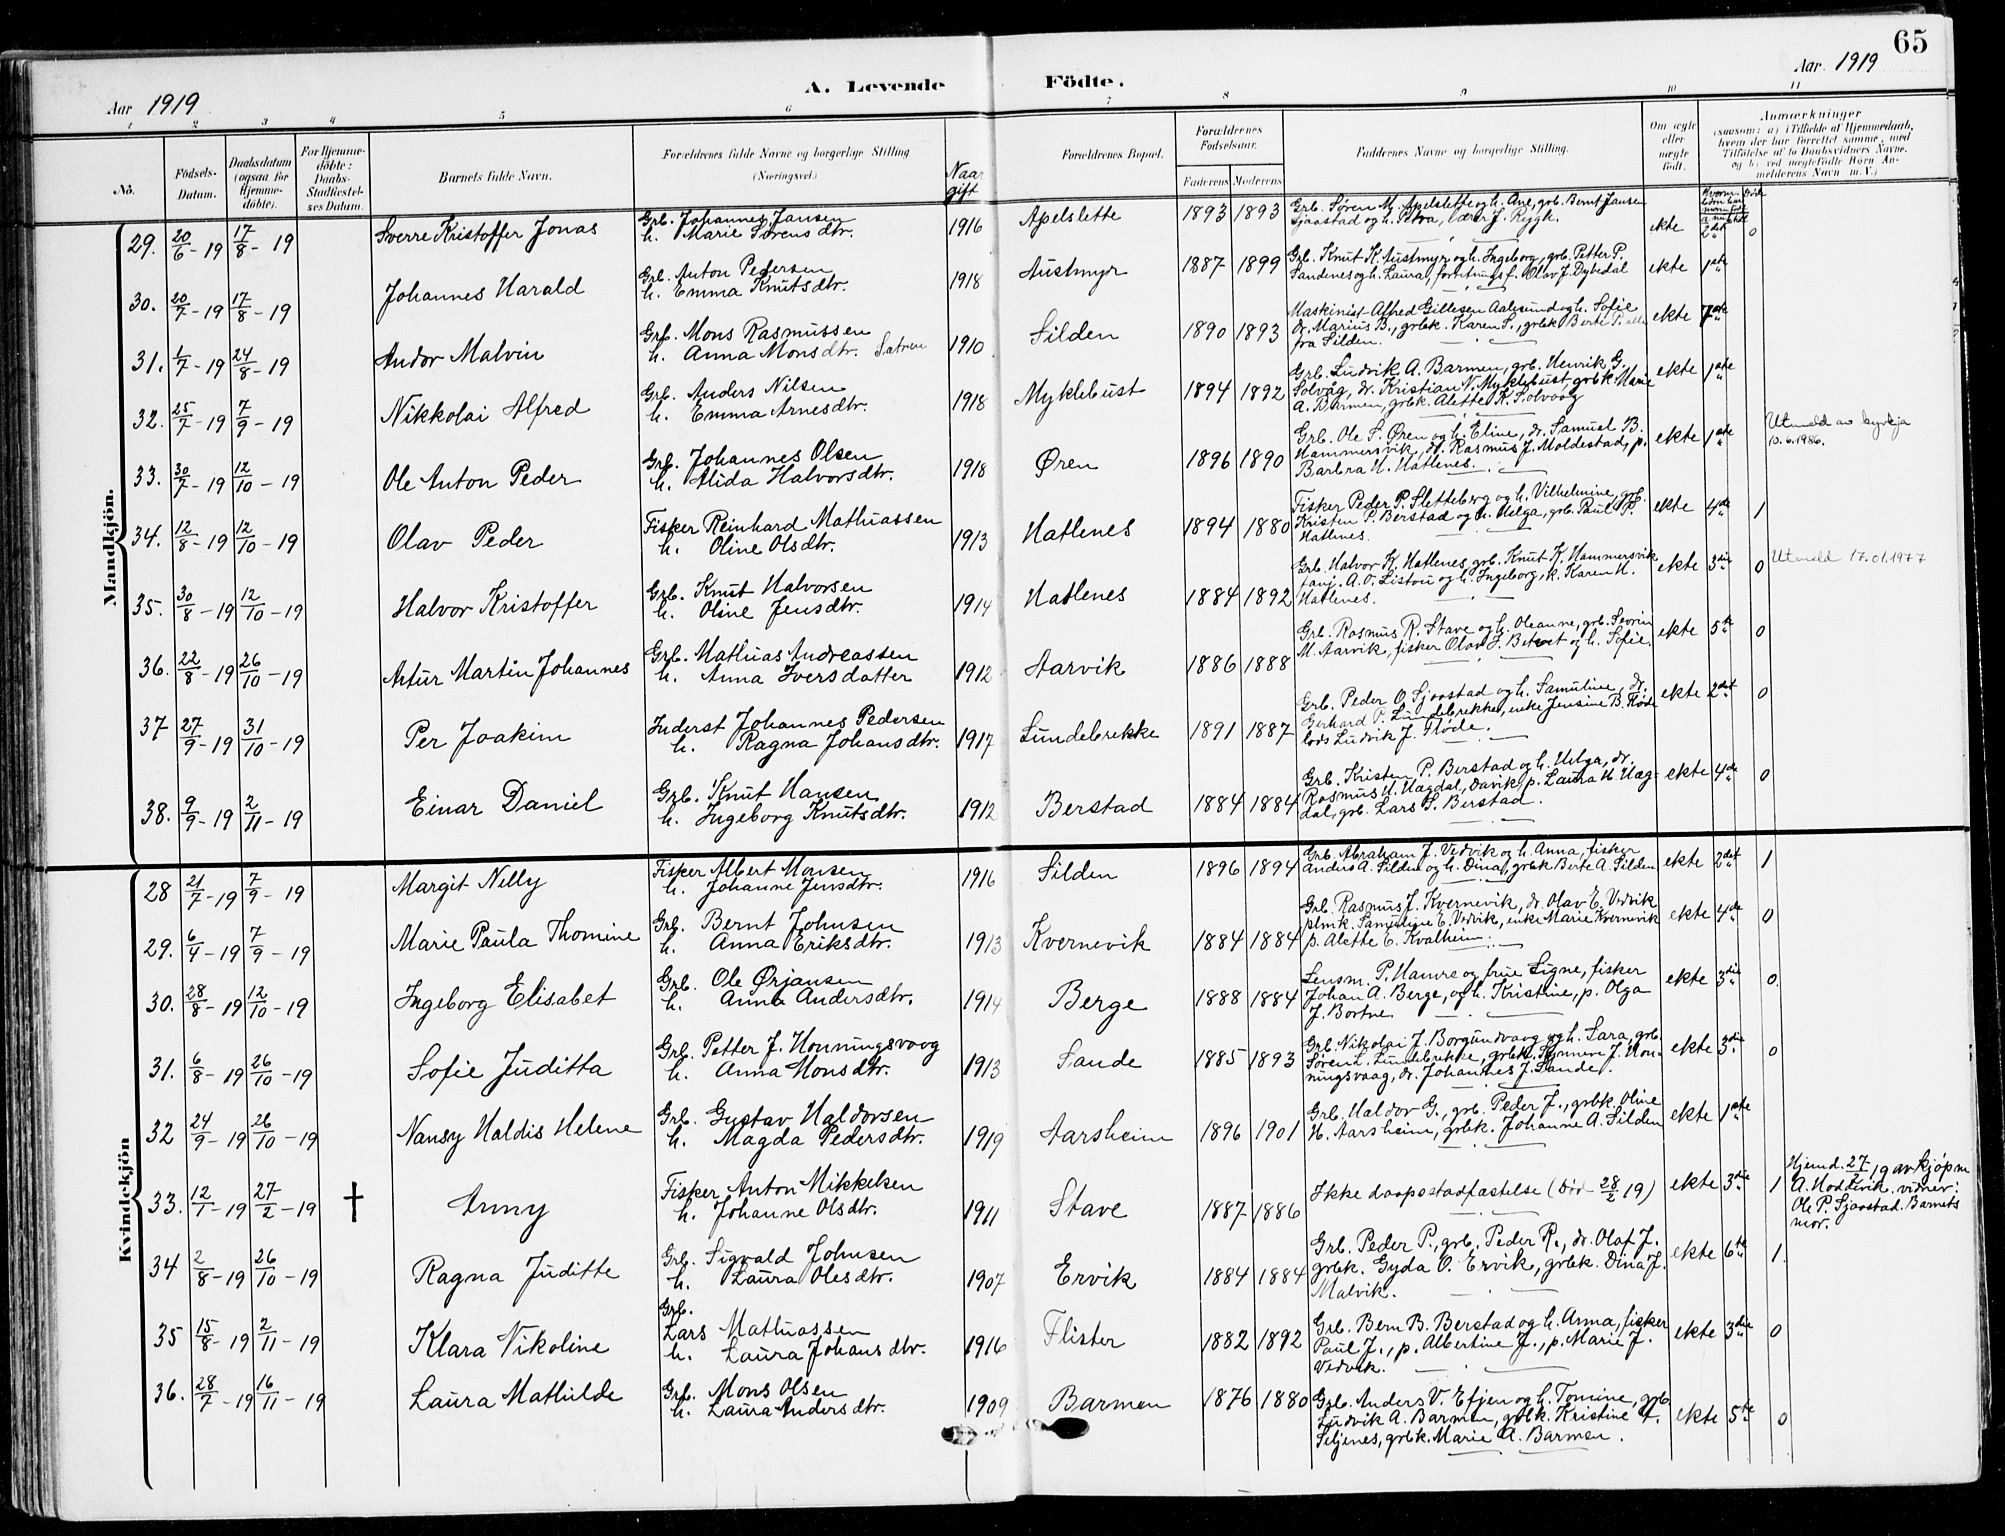 65
Aar 1919
A. Levende Födte.
Aar 1919
1 2 3 4 5 6 7 8 9 10 11
No. Födsels-Datum. Daabsdatum (ogsaa for Hjemmedöbte). For Hjemmedöbte: Daabs-Stadfæstelses Datum. Barnets fulde Navn. Forældrenes fulde Navne og borgerlige Stilling (Næringsvei.) Naar gift Forældrenes Bopæl. Forældrenes Fødselsaar. Faderens Moderens Faddernes Navne og borgerlige Stilling. Om ægte eller uægte födt. Anmærkninger (saasom: a) i Tilfælde af Hjemmedaab, hvem der har forrettet samme, med Tilföielse af to Daabsvidners Navne, og b) ved uægtefödte Börn Anmelderens Navn m. V.)
Mandkjön.
29. 20/6-19 17/8-19 Sverre Kristoffer Jonas Grb. Johannes Jansen h. Marie Sørensdtr. 1916 Apelslette 1893 1893 Grb. Søren M. Apelslette og h. Ane, grb. Bernt Jansen Sjaastad og h. Petra, lærer J. Rygg. ekte 2det 0
30. 20/7-19 17/8-19 Johannes Harald Grb. Anton Pedersen h. Emma Knutsdtr. 1918 Austmyr 1887 1899 Grb. Knut K. Austmyr og h. Ingeborg, grb. Petter P. Sandenes og h. Laura, Olav J. Dybedal ekte 1ste
31. 1/7-19 24/8-19 Andor Malvin Grb. Mons Rasmussen h. Anna Monsdtr. Sætren 1910 Silden 1890 1893 Maskinist Alfred Gillesen Aalesund og h. Sofie dr. Marius B., grbk. Karen S., grbk Berte P. alle fra Silden. ekte 7de
32. 25/7-19 7/9-19 Nikkolai Alfred Grb. Anders Nilsen h. Emma Arnesdtr. 1918 Myklebust 1894 1892 Grb. Ludvik A. Barmen, grb. Henrik G. Solvåg, dr. Kristian N. Myklebust, grbk. Marie A. Barmen, grbk. Alette K. Solvaag ekte 1ste
33. 30/7-19 12/10-19 Ole Anton Peder Grb. Johannes Olsen h. Alida Halvorsdtr. 1918 Øren 1896 1890 Grb. Ole S. Øren og h. Eline, dr. Samuel B. Hammersvik, dr. Rasmus J. Moldestad, p. Barbra H. Hatlenes. ekte 1ste Utmeld av kyrkja 10.6.1986.
34. 12/8-19 12/10-19 Olav Peder Fisker Reinhard Mathiassen h. Oline Olsdtr. 1913 Hatlenes 1894 1880 Fisker Peder P. Sletteberg og h. Vilhelmine, grb. Kristen P. Berstad og h. Helga, grb. Paul P. Hatlenes. ekte 4de 1
35. 30/8-19 12/10-19 Halvor Kristoffer Grb. Knut Halvorsen h. Oline Jensdtr. 1914 Hatlenes 1884 1892 Grb. Halvor K. Hatlenes, grb. Knut K. Hammersvik, A. O. Liston og h. Ingeborg, k. Karen H. Hatlenes. ekte 3die 0 Utmeld 17.01.1977
36. 22/8-19 26/10-19 Artur Martin Johannes Grb. Mathias Andreassen h. Anna Iversdatter 1912 Aarvik 1886 1888 Grb. Rasmus R. Stave og h. Oleanne, grb. Sevrin M. Aarvik, fisker Olav J. og h. Sofie. ekte 5te 0
37 27/9-19 31/10-19 Per Joakim Inderst Johannes Pedersen h. Ragna Johansdtr. 1917 Lundebrekke 1891 1887 Grb. Peder O. Sjaastad og h. Samuline, dr. Gerhard P. Lundebrekke, enke Jensine B. Fløde lods Ludvik J. Fløde. ekte 2det 0
38. 9/9-19 2/11-19 Einar Daniel Grb. Knut Hansen h. Ingeborg Knutsdtr. 1912 Berstad 1884 1884 Grb. Kristen P. Berstad og h. Helga, dr. Rasmus H. Hagdal, Davik, p. Laura H. Hagdal, grb. Lars S. Berstad. ekte 4de 0
Kvindekjön
28 21/7-19 7/9-19 Margit Nelly Fisker Albert Monsen h. Johanne Jensdtr. 1916 Silden 1896 1894 Grb. Abraham J. Vedvik og h. Anna, fisker Anders A. Silden og h. Dina, grbk Berte A. Silden ekte 2det 1
29. 6/4-19 7/9-19 Marie Paula Thomine Grb. Bernt Johnsen h. Anna Eriksdtr. 1913 Kvernevik 1884 1884 Grb. Rasmus J. Kvernevik, dr. Olav E. Vedvik plmk. Samuline E. Vedvik, enke Marie Kvernevik p. Alette E. Kvalheim. ekte 4de 0
30. 28/8-19 12/10-19 Ingeborg Elisabet Grb. Ole Ørjansen h. Anna Andersdtr. 1914 Berge 1888 1884 Lensm. P. Hamre og frue Signe, fisker Johan A. Berge, og h. Kristine, p. Olga J. Bortne. ekte 3die 0.
31. 6/8-19 26/10-19 Sofie Juditta Grb. Petter J. Honningsvaag h. Anna Monsdtr. 1913 Sande 1885 1893 Grb. Nikolai J. Borgundvaag og h. Sara, grb. Søren L. Lundebrekke, grbk. Synneve J. Honningsvaag, dr. Johannes J. Sande. ekte 3die 0
32 24/9-19 26/10-19 Nansy Haldis Helene Grb. Gustav Haldorsen h. Magda Pedersdtr. 1919 Aarsheim 1896 1901 Grb. Haldor G., grb. Peder J., grbk. Oline H. Aarsheim, grbk. Johanne A. Silden ekte 1ste
33. 12/1-19 27/2-19 † Anny Fisker Anton Mikkelsen h. Johanne Olsdtr. 1911 Stave 1887 1886 Ikke daapsstadfæstelse (Död 28/2 19) ekte 3die 1 Hjemd. 27/2 19 av kjöpm A. Hoddevik, vidner: Ole P. Sjaastad. Barnets mor.
34 2/8-19 26/10-19 Ragna Juditte Grb. Sigvald Johnsen h. Laura Olesdtr. 1907 Ervik 1884 1884 Grb. Peder P., grb. Peder R., dr. Olaf J. grbk. Gyda O. Ervik, grbk. Dina J. Malvik. ekte 6te 1.
35 15/8-19 2/11-19 Klara Nikoline Grb. Lars Mathiassen h. Laura Johansdtr. 1916 Flister 1882 1892 Grb. Bern B. Berstad og h. Anna, fisker Paul J., p. Albertine J., p. Marie J. Vedvik. ekte 3die 0
36. 28/7-19 16/11-19 Laura Mathilde Grb. Mons Olsen h. Laura Andersdtr. 1909 Barmen 1876 1880 Grb. Anders V. Efjen og h. Tomine, grb. Ludvik A. Barmen, grbk. Kristine A. Seljenes, grbk. Marie A. Barmen. ekte 5te 0